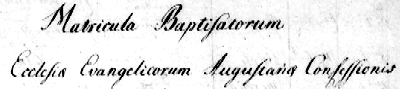 Matricula Baptisatorum
Ecclesiæ Evangelicorum Augustanæ Confessionis